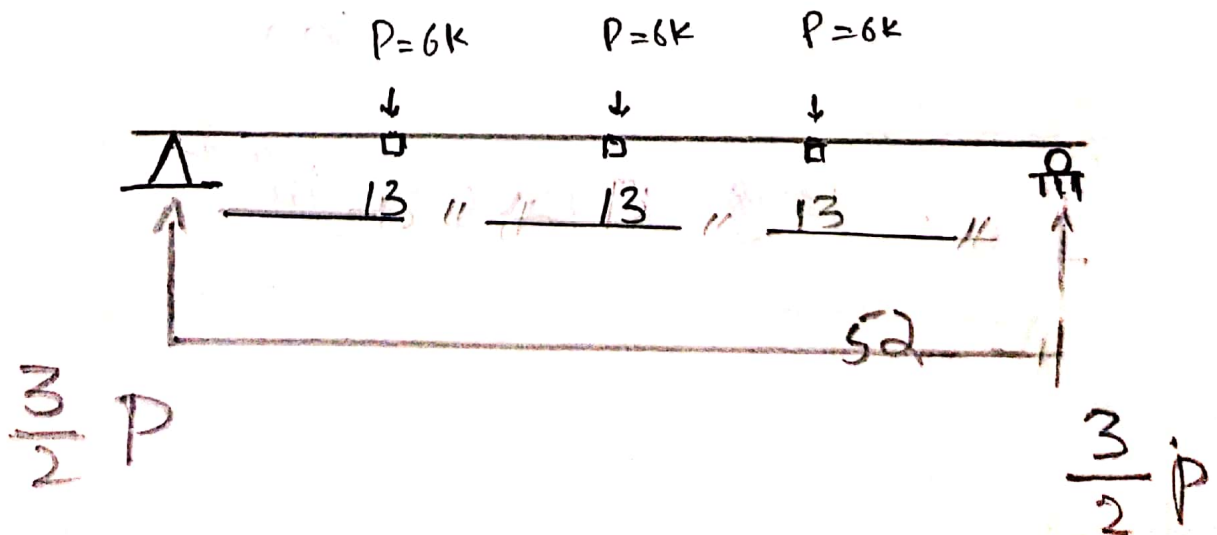 P=6K P=6K P=6K
13 " " 13 " 13 "
52 "
3/2 P
3/2 P